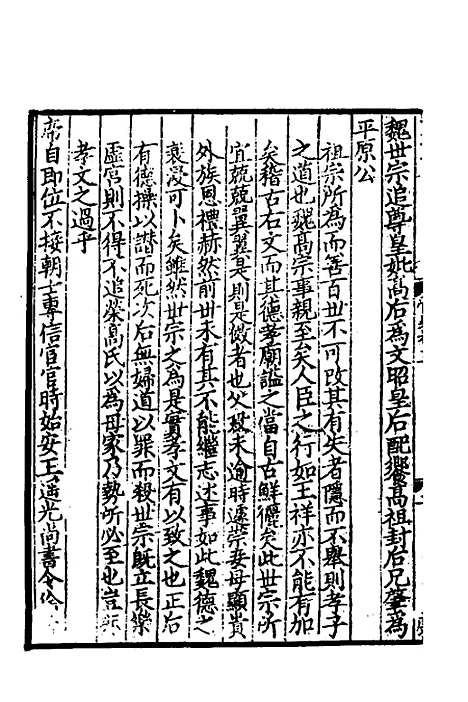 魏世宗追尊皇妣高后為文昭皇后配饗高祖封后兄肇為
平原公
祖宗所為而善百世不可改其有失者隱而不舉則孝子
之道也魏高宗事親至矣人臣之行如王祥亦不能有加
矣稽古右文而其德孝廟謚之當自古鮮儷矣此世宗所
宜兢兢翼翼是則是傚者也父殁未逾時遽崇妾母顯貴
外族恩禮赫然前世未有其不能繼志述事如此魏德之
衰寖可卜矣雖然世宗之為是實孝文有以致之也正后
有德撫以譖而死次后無婦道以罪而殺世宗既立長樂
虛宮則不得不追榮高氏以為母家乃勢所必至也豈非
孝文之過乎
帝自即位不接朝士專信宦官時始安王遙光尚書令徐